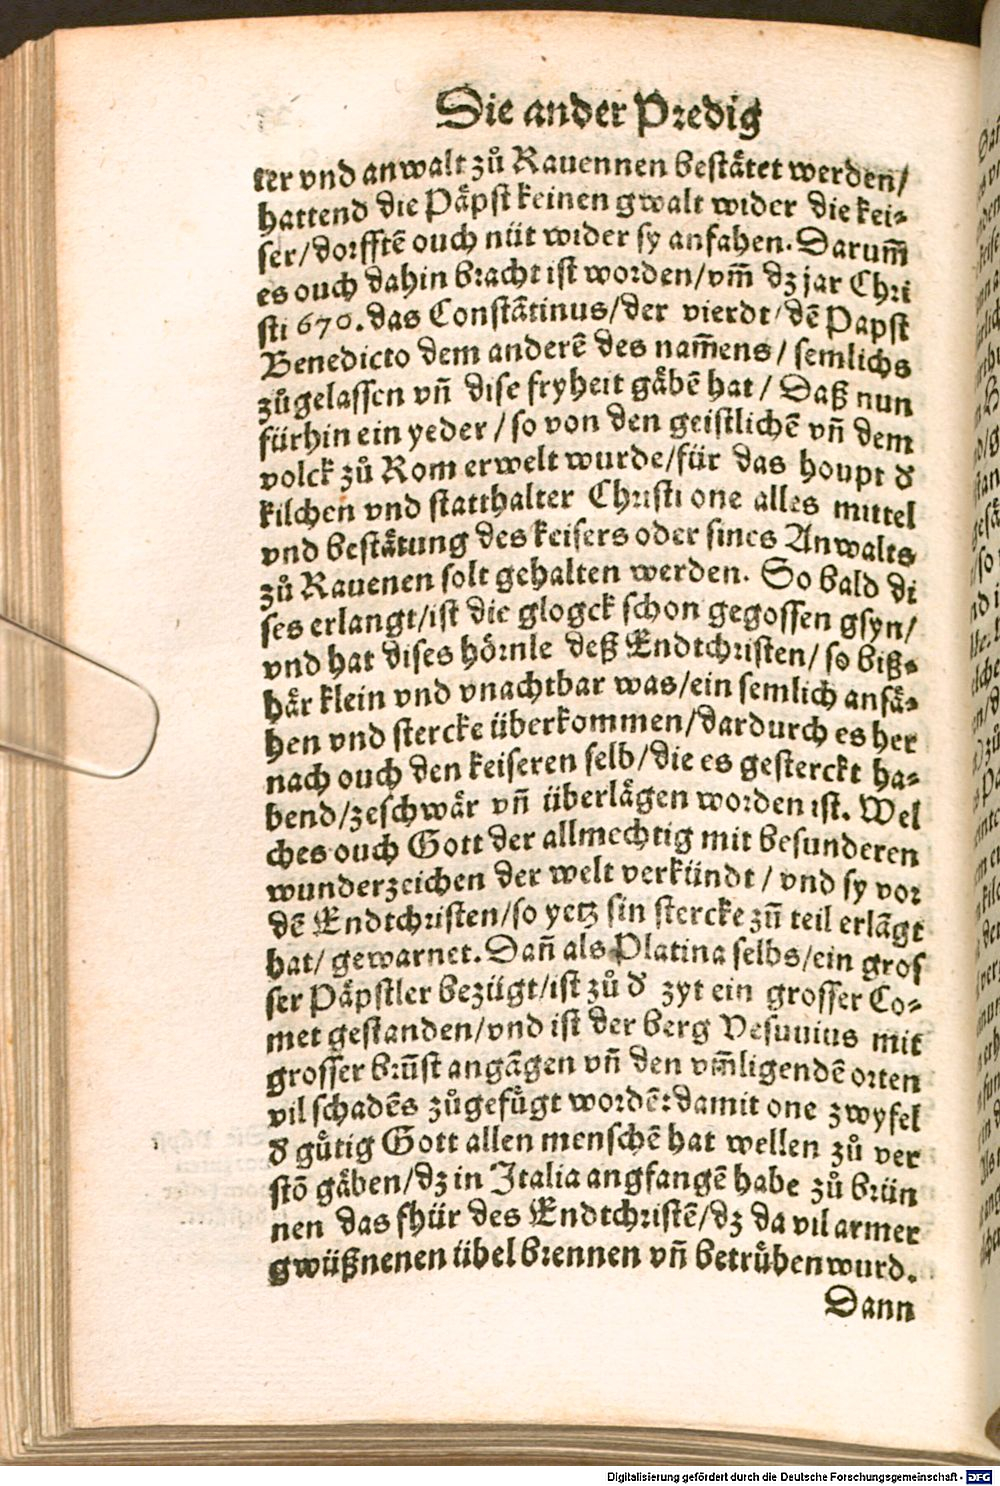 Die ander Predig
ter vnd anwalt zů Rauennen bestaͤtet werden/
hattend die Paͤpst keinen gwalt wider die kei⸗
ser/dorfftē ouch nüt wider sy anfahen. Darum̃
es ouch dahin bracht ist worden/vm̃ dz jar Chri
sti 670. das Constātinus/der vierdt/dē Papst
Benedicto dem anderē des nam̃ens/ semlichs
zůgelassen vñ dise fryheit gaͤbē hat/ Daß nun
fürhin ein yeder/so von den geistlichē vñ dem
volck zů Rom erwelt wurde/für das houpt d̕
kilchen vnd statthalter Christi one alles mittel
vnd bestaͤtung des keisers oder sines Anwalts
zů Rauenen solt gehalten werden. So bald di
ses erlangt/ist die glogck schon gegossen gsyn/
vnd hat dises hoͤrnle deß Endtchristen/so biß⸗
haͤr klein vnd vnachtbar was/ein semlich ansaͤ⸗
hen vnd stercke überkommen/dardurch es her
nach ouch den keiseren selb/die es gesterckt ha⸗
bend/zeschwaͤr vñ überlaͤgen worden ist. Wel
ches ouch Gott der allmechtig mit besunderen
wunderzeichen der welt verkündt/vnd sy vor
dē Endtchristen/so yetz sin stercke zū teil erlāgt
hat/ gewarnet. Dañ als Platina selbs/ein gros
ser Paͤpstler bezügt/ist zů d̕ zyt ein grosser Co⸗
met gestanden/vnd ist der berg Vesuuius mit
grosser brūst angāgen vñ den vm̃ligendē orten
vil schadēs zůgefuͤgt wordē: damit one zwyfel
d̕ guͤtig Gott allen menschē hat wellen zů ver
stō gaͤben/dz in Italia angfangē habe zů brün
nen das fhür des Endtchristē/dz da vil armer
gwüßnenen übel brennen vñ betruͤben wurd.
Dann
Digitalisierung gefördert durch die Deutsche Forschungsgemeinschaft - DFG